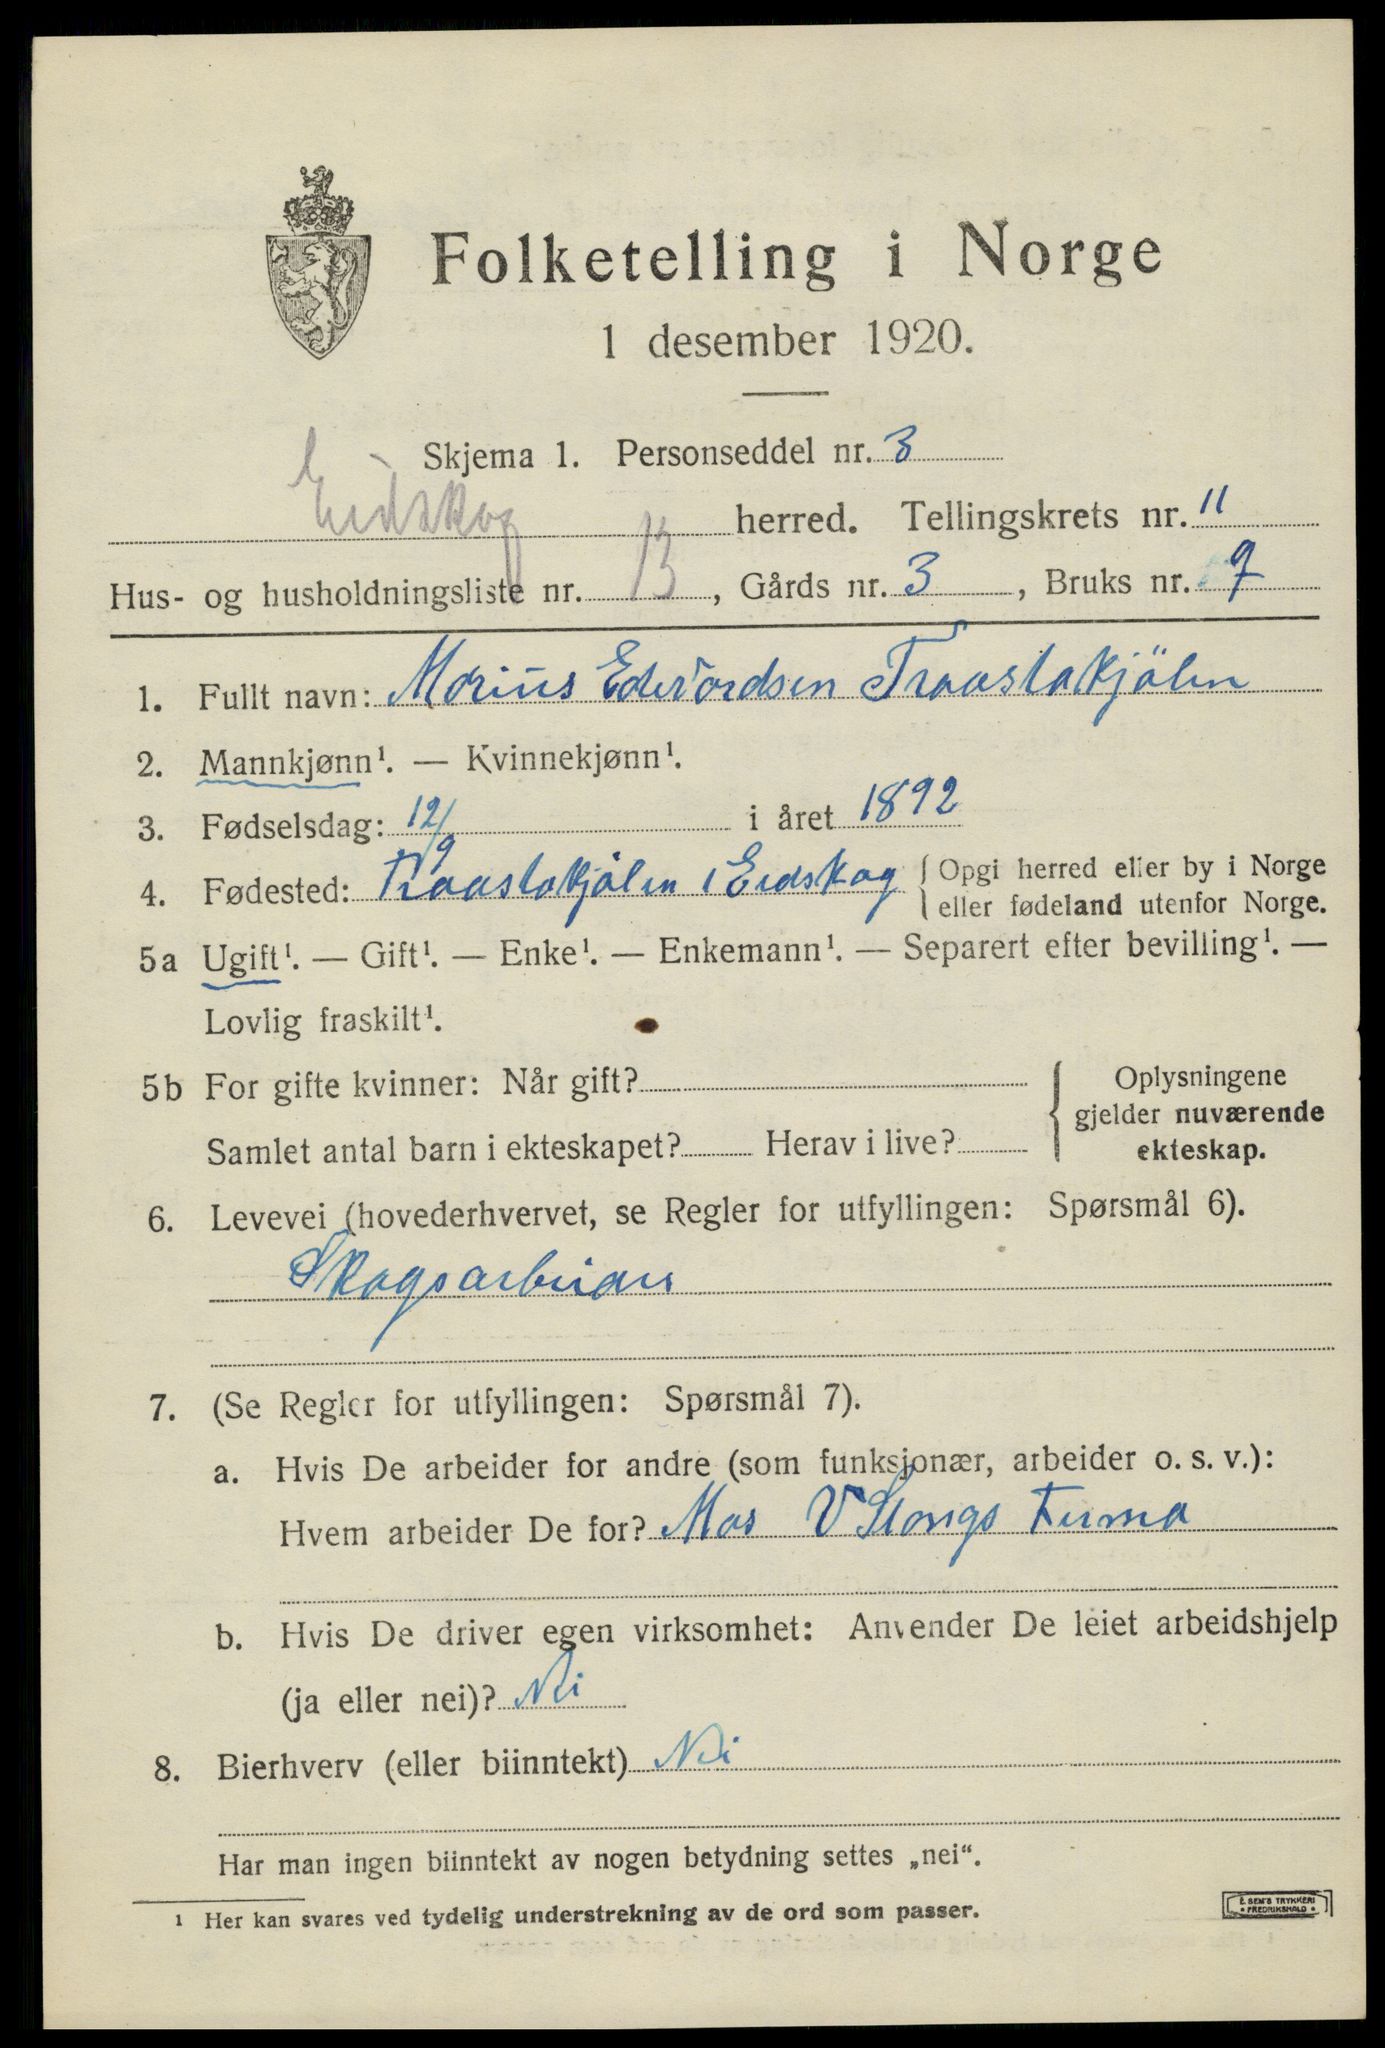 Folketelling i Norge
1 desember 1920.
Skjema 1. Personseddel nr. 3
Eidskog herred. Tellingskrets nr. 11
Hus- og husholdningsliste nr. 13, Gårds nr. 3, Bruks nr. 7
1. Fullt navn: Marius Edvardsen Traastakjölen
2. Mannkjønn¹. — Kvinnekjønn¹.
3. Fødselsdag: 12/9 i året 1892
4. Fødested: Traastakjölen i Eidskog { Opgi herred eller by i Norge
eller fødeland utenfor Norge.
5a Ugift¹. — Gift¹. — Enke¹. — Enkemann¹. — Separert efter bevilling¹. —
Lovlig fraskilt¹.
5b For gifte kvinner: Når gift?
Samlet antal barn i ekteskapet? Herav i live?
{ Oplysningene
gjelder nuværende
ekteskap.
6. Levevei (hovederhvervet, se Regler for utfyllingen: Spørsmål 6).
Skogsarbeider
7. (Se Regler for utfyllingen: Spørsmål 7).
a. Hvis De arbeider for andre (som funksjonær, arbeider o. s. v.):
Hvem arbeider De for? Mas V Stangs Firma
b. Hvis De driver egen virksomhet: Anvender De leiet arbeidshjelp
(ja eller nei)? Nei
8. Bierhverv (eller biinntekt) Nei
Har man ingen biinntekt av nogen betydning settes „nei“.
¹ Her kan svares ved tydelig understrekning av de ord som passer.
E. SEM'S TRYKKERI
• FREDRIKSHALD •